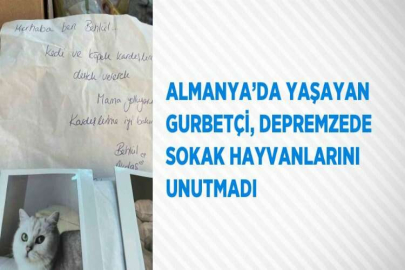 Merhaba ben Behlül..
Kedi ve Köpek kardeşlerime
destek vererek
Mama yolluyorum
Kardeşlerime iyi bakın
Behlül
ALMANYA'DA YAŞAYAN
GURBETÇİ, DEPREMZEDE
SOKAK HAYVANLARINI
UNUTMADI